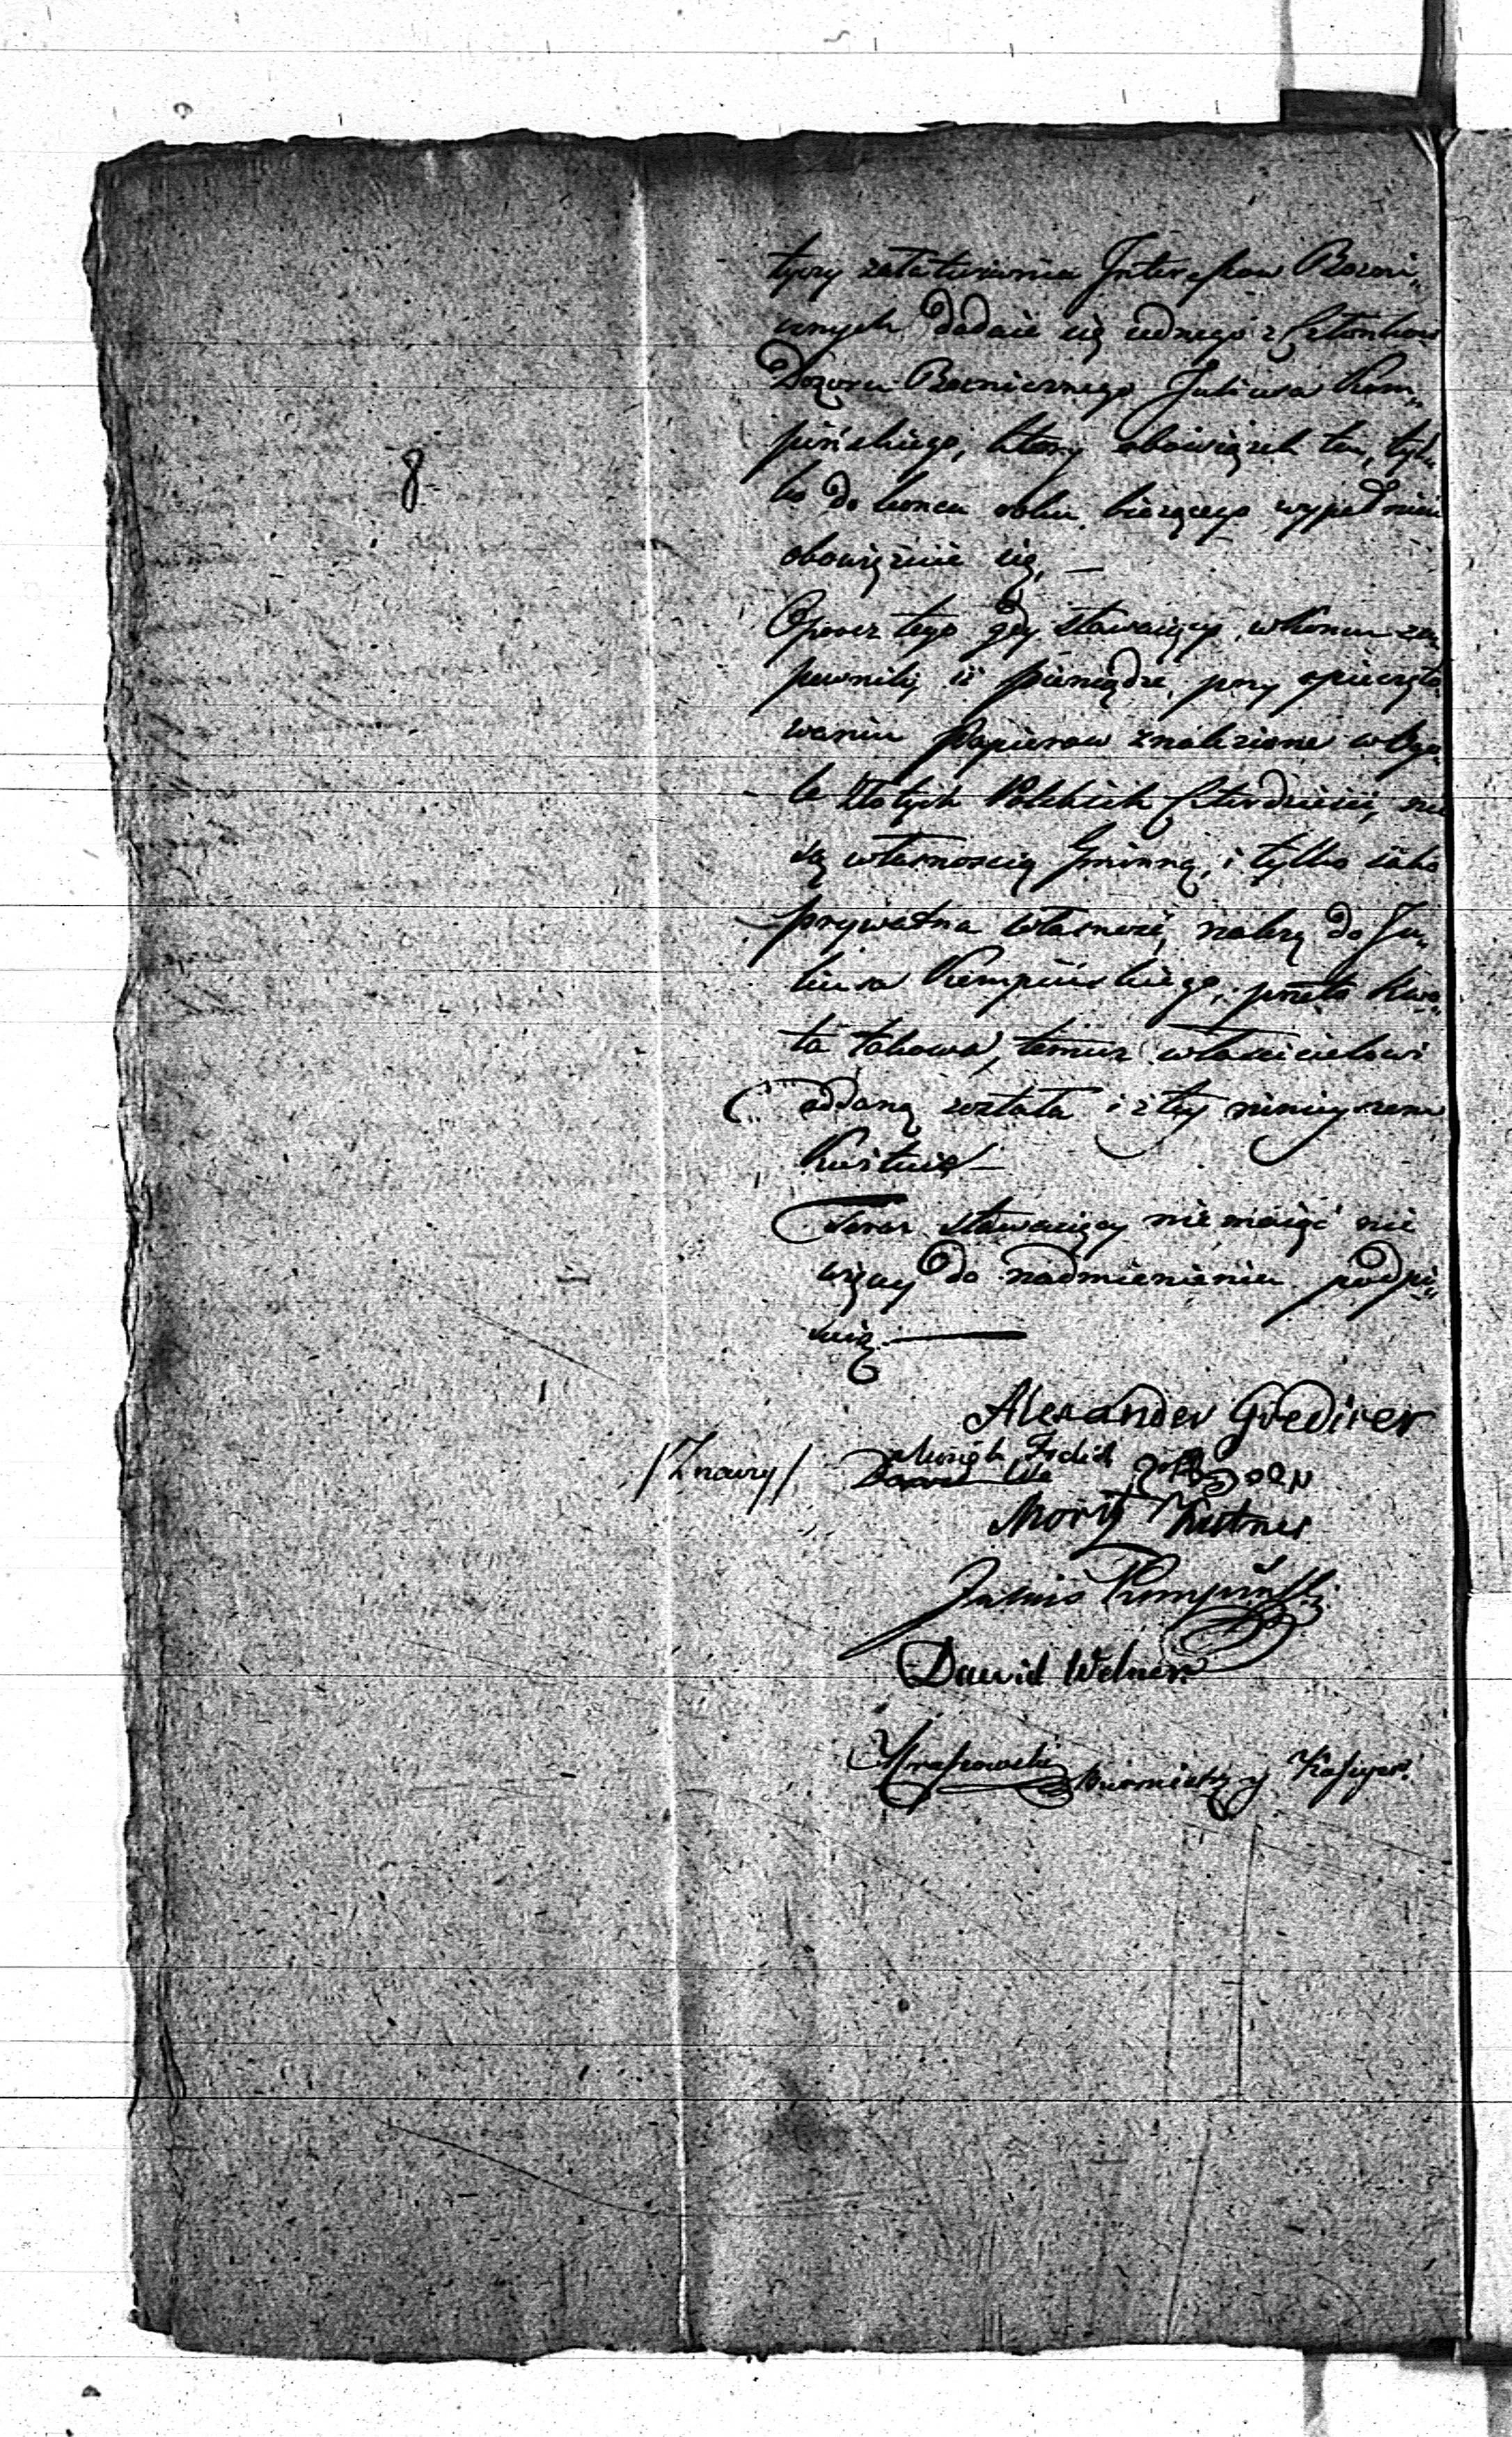 8
tyczy załatwiania Interessow Bozni„
cznych dodaie się iednego z Członkow
Dozoru Boznicznego Juliusa Kem„
pińskiego, ktory obowiązek ten, tyl„
ko do konca roku bieżącego wypełnień
obowiązuie się, —
Oprocz tego gdy stawaiący w koncu za„
pewnili iż pieniądze, przy opieczęto„
waniu Papierow znalezione w Ogo„
le złotych Polskich Czterdzieści, nie
są własnoscią Gminną, i tylko iako
prywatna własność, należą do Ju„
liusa Kempińskiego, przeto kwo„
ta takowa, temuż właścicielowi
oddaną została i z tey ninieyszem
kwituie —
Teraz stawaiący nie maiąc nic
więcey do nadmienienia podpi„
suią —
Alexander Gredixer
/Znaczy/
Moritz Kutner
Julius Kempiński
Dawid Welner
Burmistrz y Kassyer